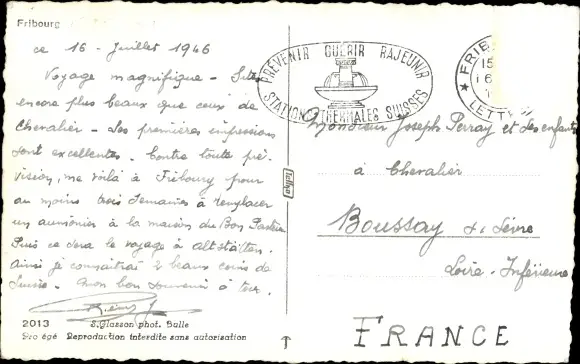 Fribourg
ce 16 - Juillet 1946
Voyage magnifique - Sites
encore plus beaux que ceux de
Chevalier - Les premières impressions
sont excellentes. Contre toute pré-
vision, me voilà à Fribourg pour
au moins trois semaines à remplacer
un aumônier à la maison du Bon Pasteur
Puis ce sera le voyage à Altstätten.
Ainsi je connaîtrai 2 beaux coins de
Suisse. Mon bon souvenir à tous.
2013
S. Glasson phot. Bulle
Reproduction interdite sans autorisation
PRÉVENIR GUÉRIR RAJEUNIR
STATIONS THERMALES SUISSES
FRIB
LETT
Monsieur Joseph Perray et les enfants
à Chevalier
Boussay s. Sèvre
Loire-Inférieure
FRANCE